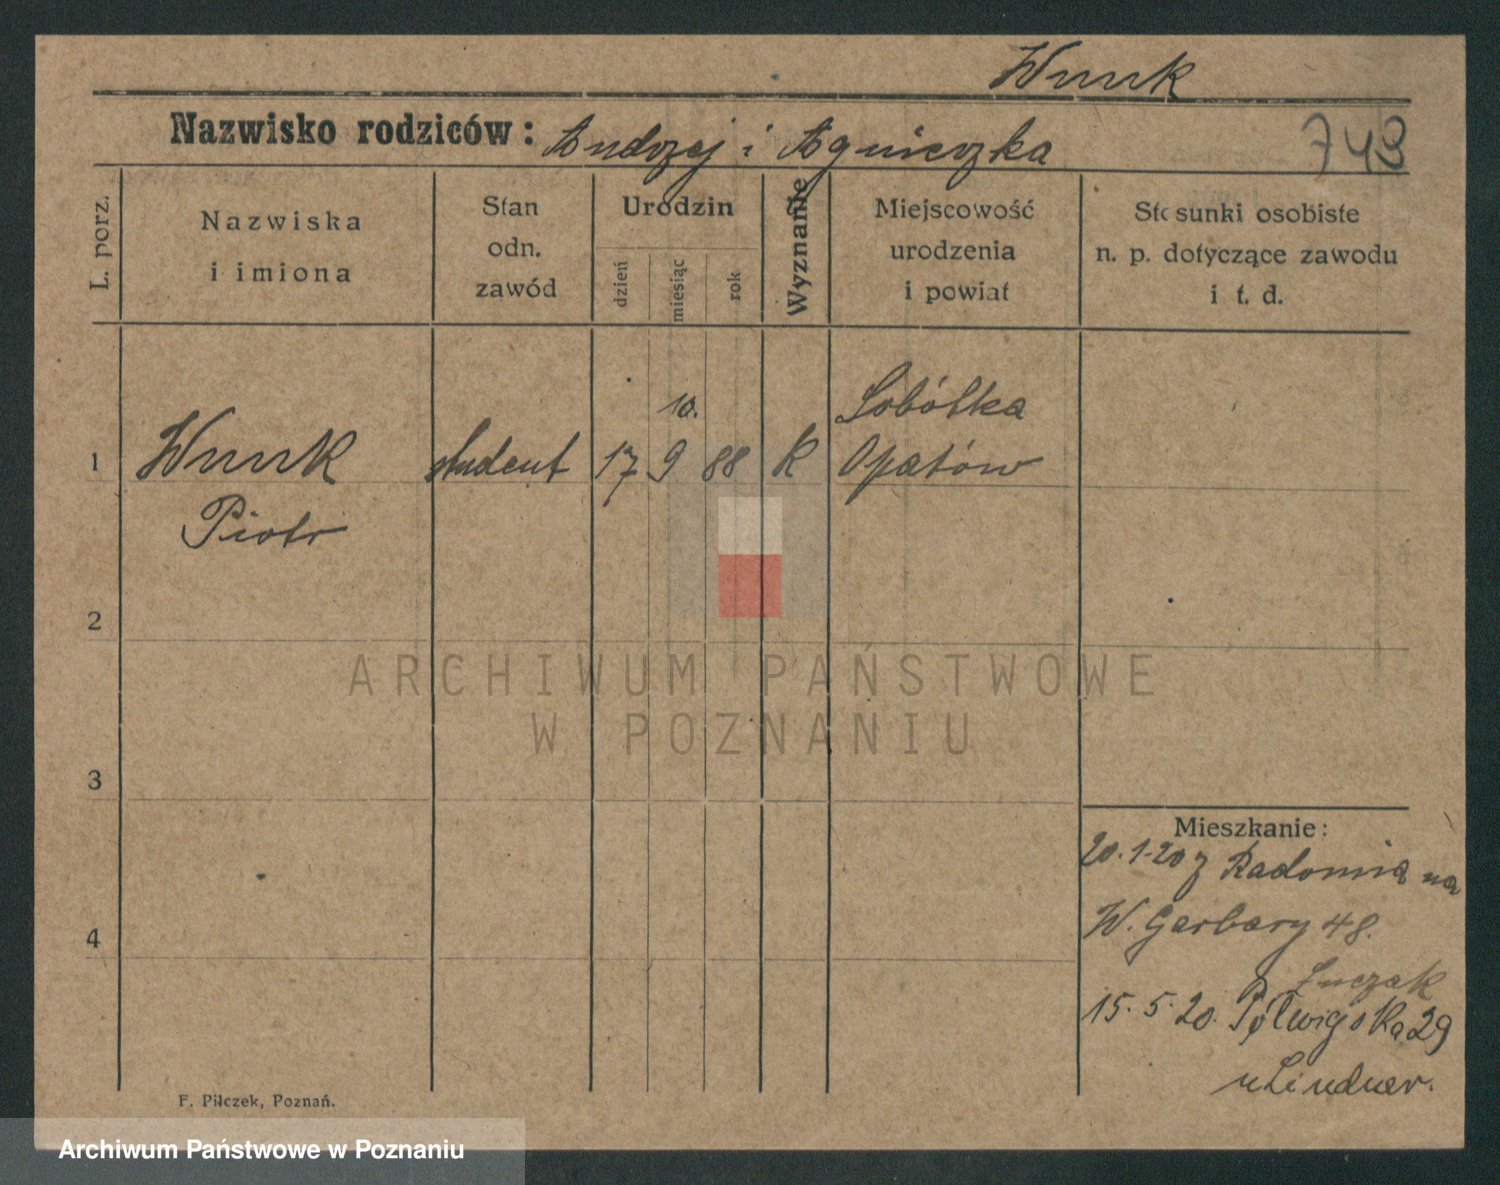 Wnuk
Nazwisko rodziców: Andrzej i Agnieszka
743
L. porz.
Nazwiska
i imiona
Stan
odn.
zawód
Urodzin
dzień
miesiąc
rok
Wyznanie
Miejscowość
urodzenia
i powiat
Stosunki osobiste
n. p. dotyczące zawodu
i t. d.
1
Wnuk
Piotr
student
17
10.
9
88
K
Sobótka
Opatów
2
3
4
Mieszkanie:
20.1-20 z Radomia na
W. Garbary 48.
Łuczak
15.5.20. Półwiejska 29
u Lindner.
F. Pilczek, Poznań.
ARCHIWUM PAŃSTWOWE
W POZNANIU
Archiwum Państwowe w Poznaniu